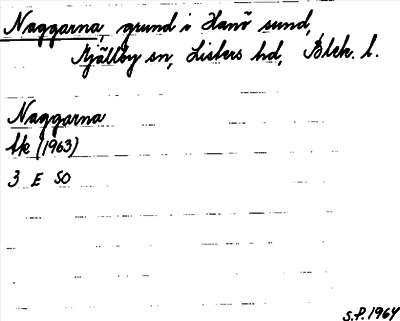 Naggarna, grund i Hanö sund,
Mjällby sn, Listers hd, Blek. l.
Naggarna
Ek (1963)
3 E SO
S.F. 1964